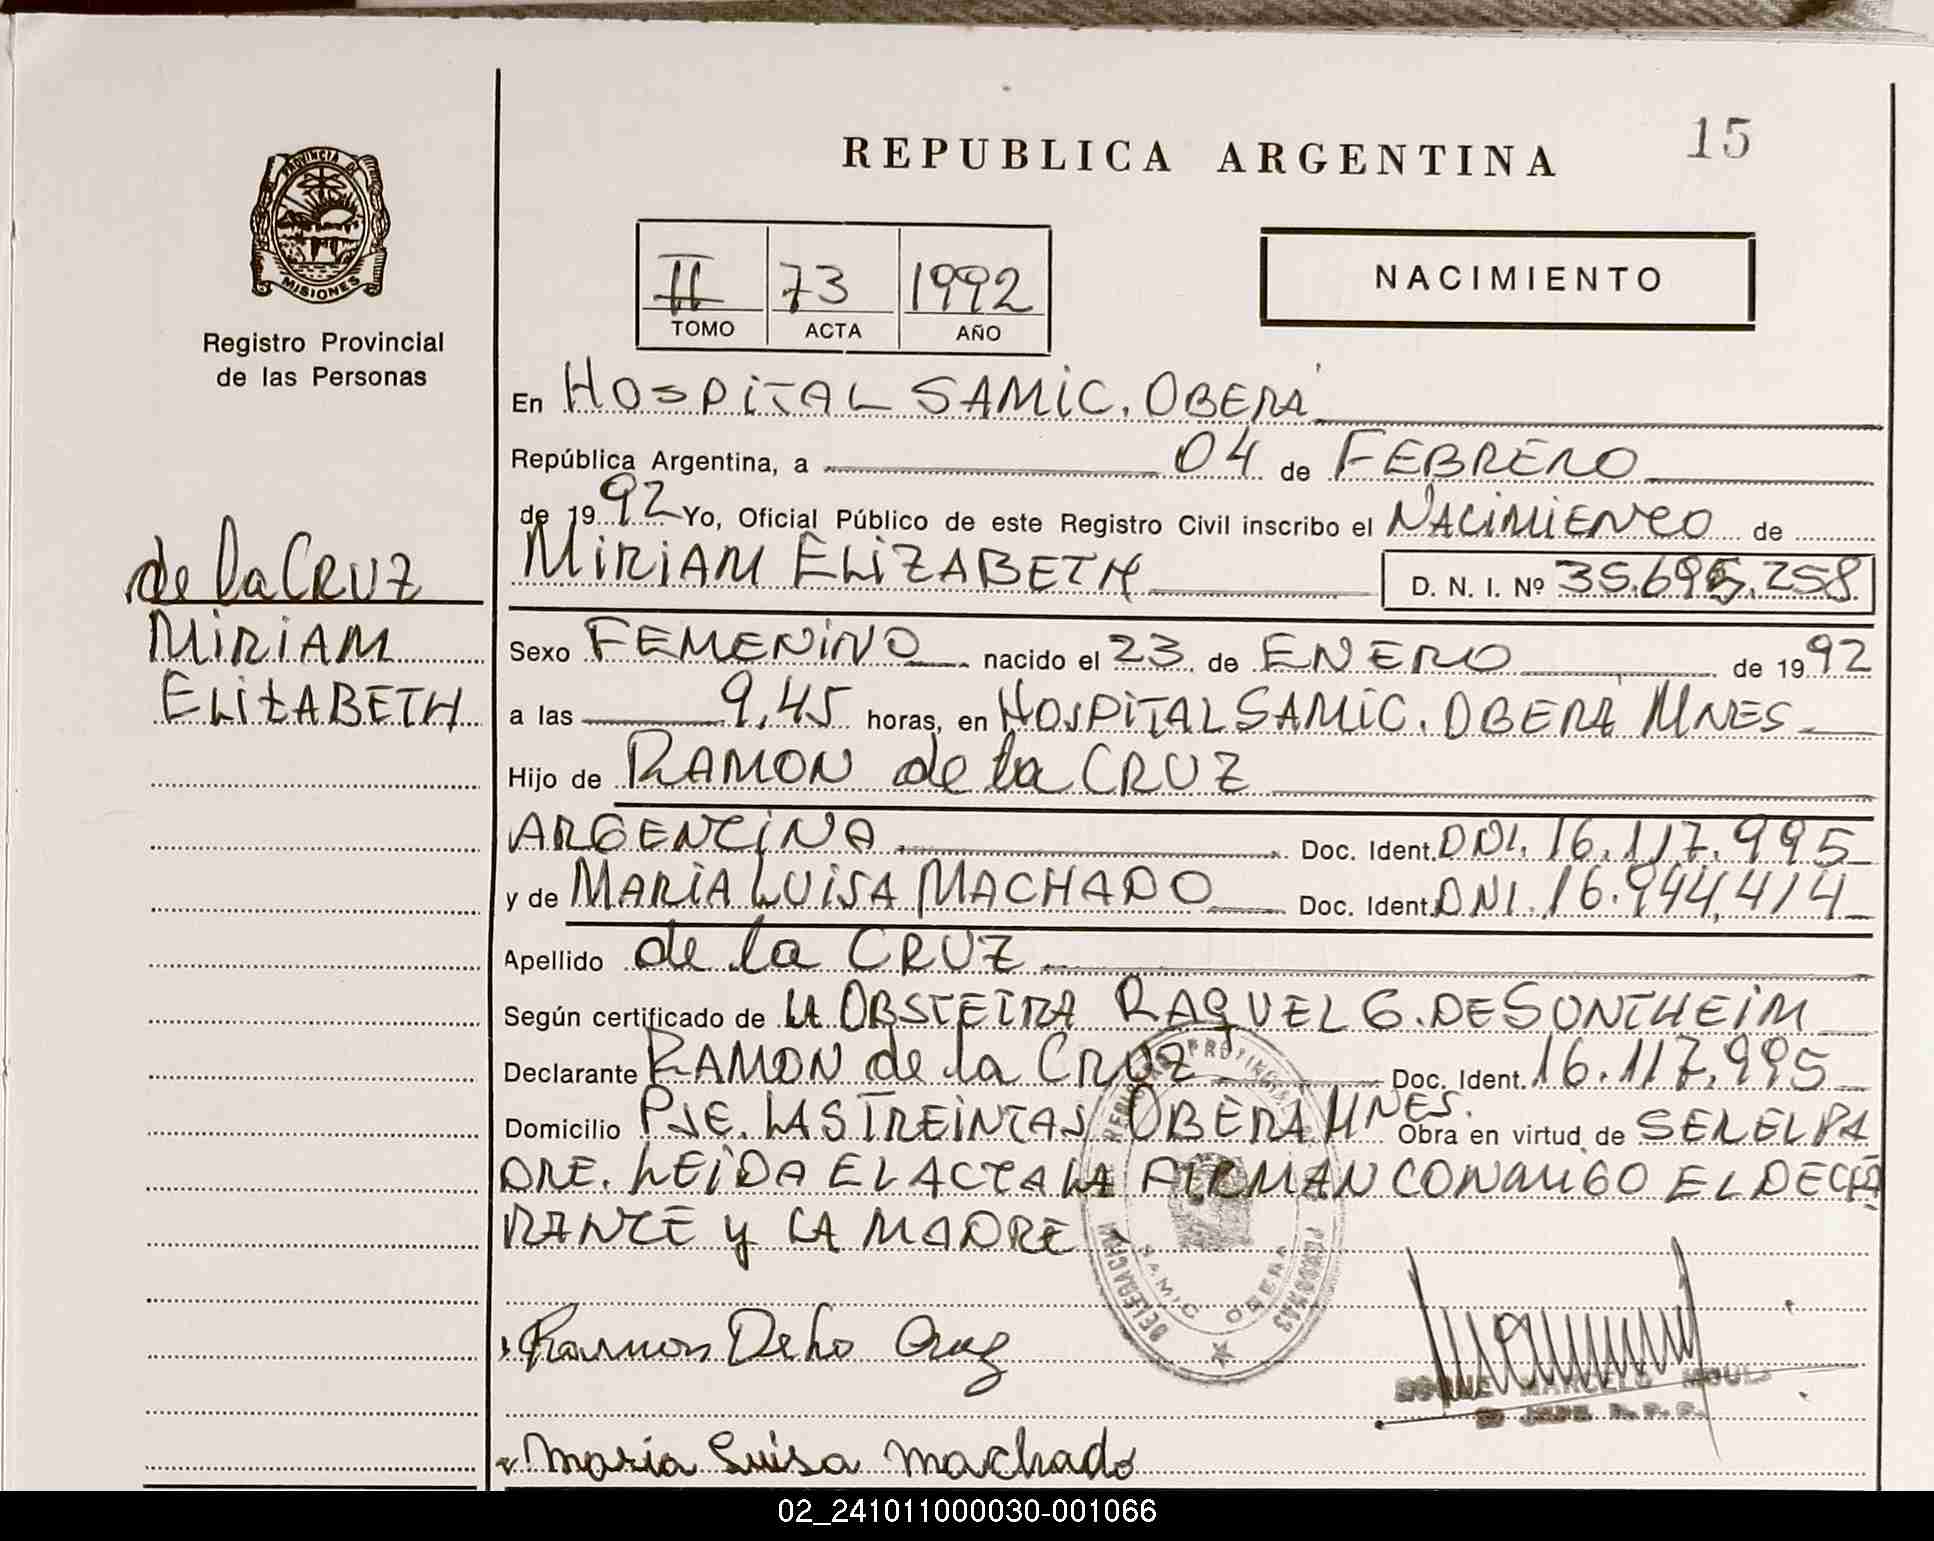 REPUBLICA ARGENTINA
15
PROVINCIA DE
MISIONES
Registro Provincial
de las Personas
II 73 1992
TOMO ACTA AÑO
NACIMIENTO
de la CRUZ
MIRIAM
ELIZABETH
En HOSPITAL SAMIC. OBERÁ
República Argentina, a 04 de FEBRERO
de 1992 Yo, Oficial Público de este Registro Civil inscribo el NACIMIENTO de
MIRIAM ELIZABETH D. N. I. Nº 35.695.258
Sexo FEMENINO nacido el 23 de ENERO de 1992
a las 9,45 horas, en HOSPITAL SAMIC. OBERÁ MNES
Hijo de RAMON de la CRUZ
ARGENTINA Doc. Ident. DNI. 16.117.995
y de MARIA LUISA MACHADO Doc. Ident. DNI. 16.944.414
Apellido de la CRUZ
Según certificado de LA OBSTETRA RAQUEL G. DE SONTHEIM
Declarante RAMON de la CRUZ Doc. Ident. 16.117.995
Domicilio PJE. LAS TREINTAS OBERA MNES. Obra en virtud de SER EL PA
DRE. LEIDA EL ACTA LA FIRMAN CONMIGO EL DECLA
RANTE y LA MADRE
DELEGACION
SAMIC OBERA
Ramon Deho Cruz
MARCELO
Maria Luisa Machado
02_241011000030-001066